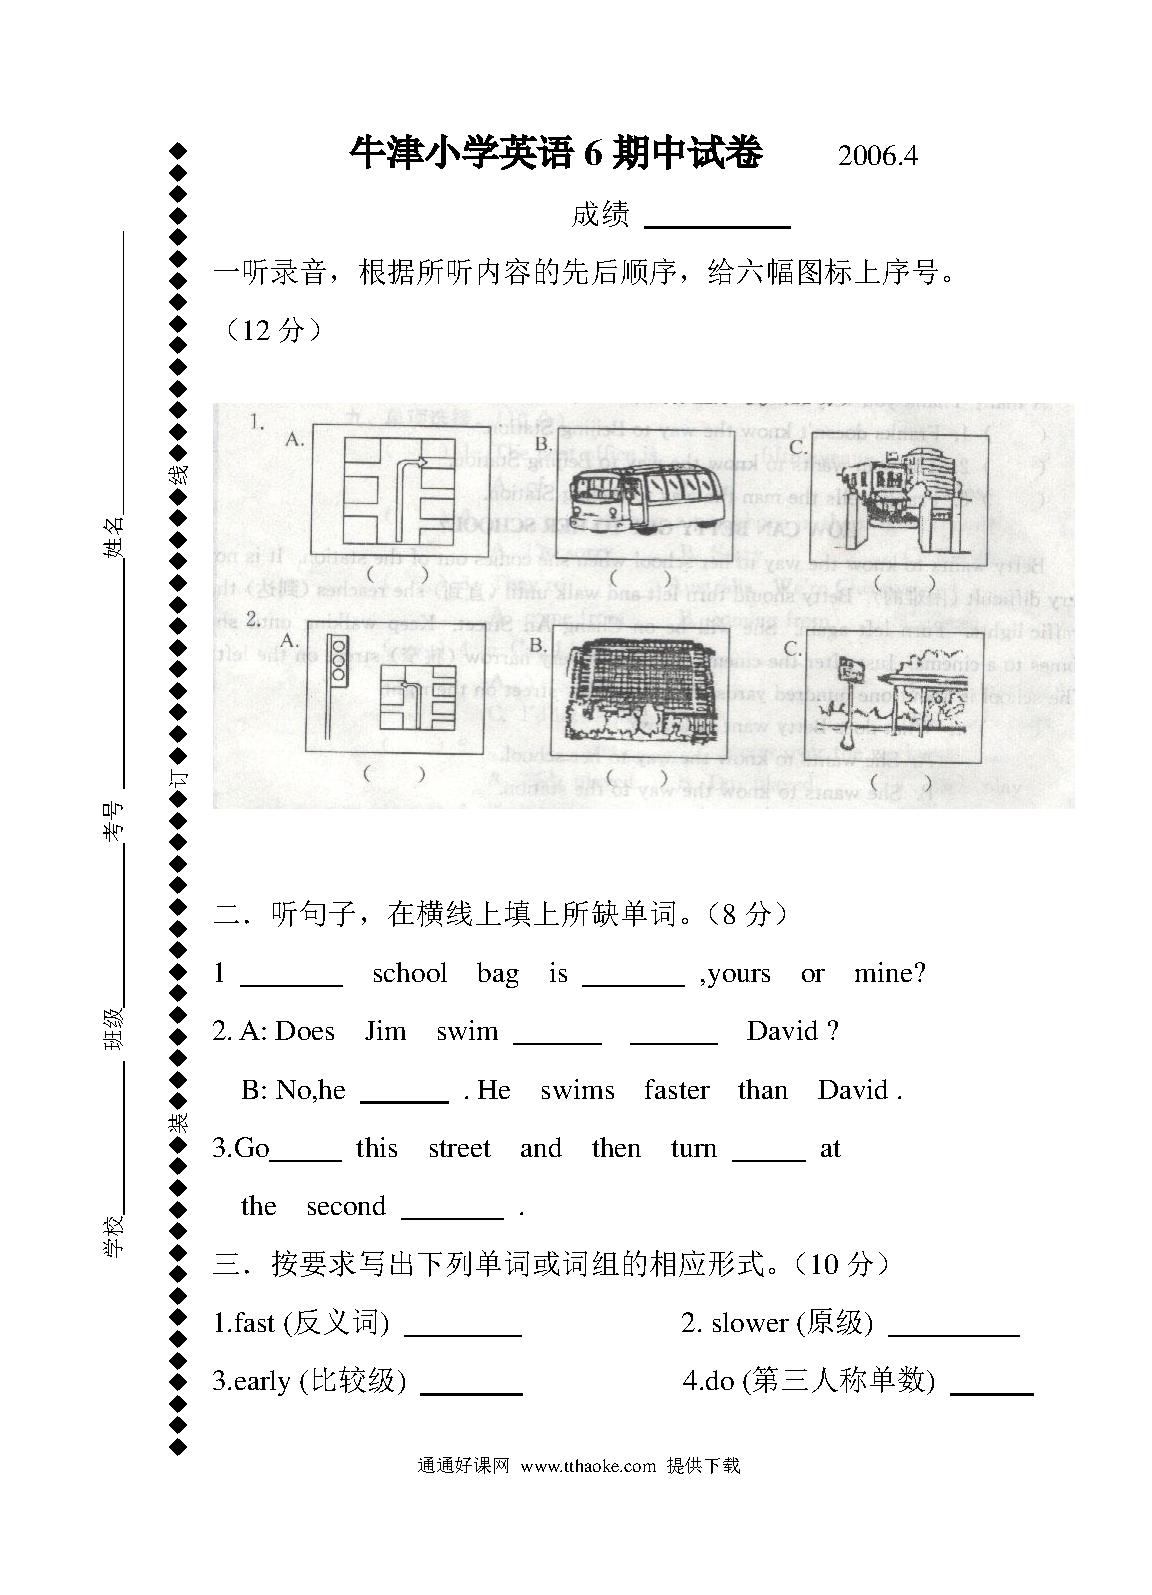 牛津小学英语 6 期中试卷 2006.4
成绩
一听录音，根据所听内容的先后顺序，给六幅图标上序号。
（12 分）
1.
A. B. C.
( ) ( ) ( )
2.
A. B. C.
( ) ( ) ( )
二．听句子，在横线上填上所缺单词。（8 分）
1 ______ school bag is ______ ,yours or mine?
2. A: Does Jim swim ______ ______ David ?
B: No,he ______ . He swims faster than David .
3.Go_____ this street and then turn _____ at
the second ______ .
三．按要求写出下列单词或词组的相应形式。（10 分）
1.fast (反义词) ______ 2. slower (原级) ______
3.early (比较级) ______ 4.do (第三人称单数) ______
通通好课网 www.tthaoke.com 提供下载
学校 班级 考号 姓名
装 订 线